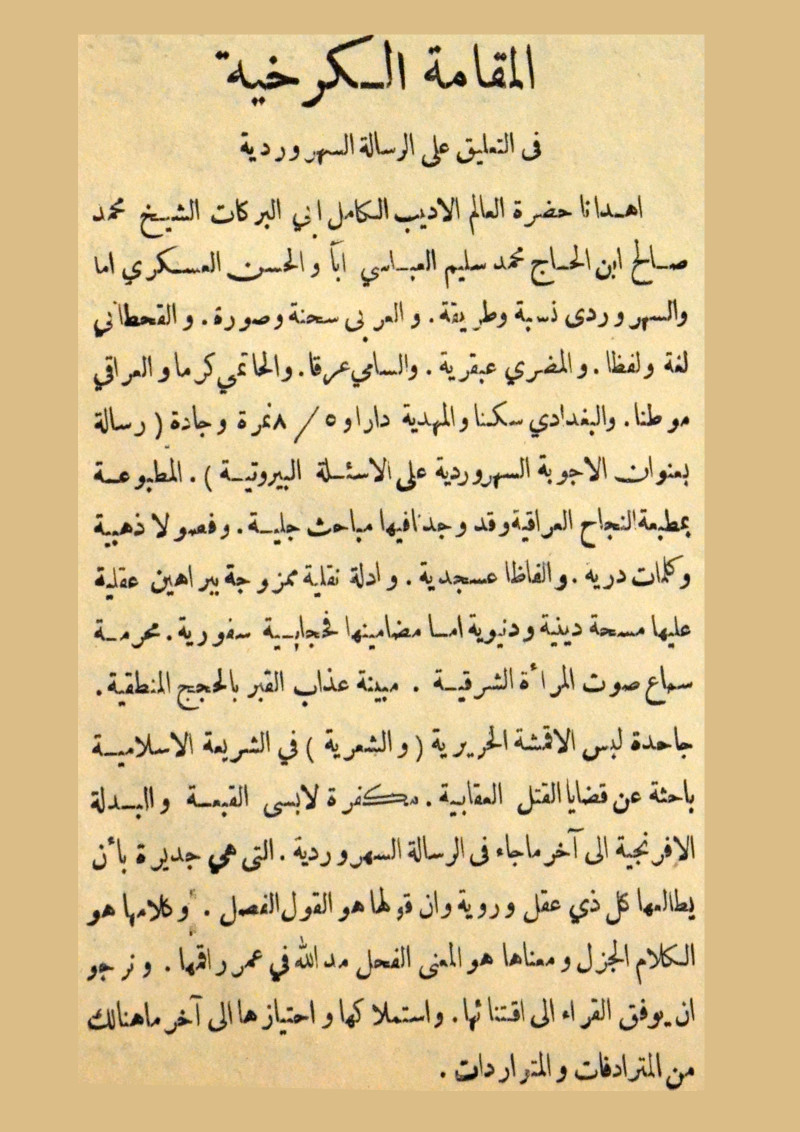 المقامة الكرخية
فى التعليق على الرسالة السهروردية
اهدانا حضرة العالم الاديب الكامل ابي البركات الشيخ محمد
صالح ابن الحاج محمد سليم العباسي اباً والحسن العسكري اما
والسهروردى نسبة وطريقة . والعربى سحنة وصورة . والقحطاني
لغة ولفظا . والمضري عبقرية . والسامي عرقا . والحاتمي كرما والعراقي
موطنا . والبغدادي سكنا والمهدية دارا و ٥ / ٨ نمرة وجادة ( رسالة
بعنوان الاجوبة السهروردية على الاسئلة البيروتية ) . المطبوعة
بمطبعة النجاح العراقية وقد وجدنا فيها مباحث جلية . وفصولا ذهبية
وكلمات دريه . والفاظا عسجدية . وادلة نقلية ممزوجة ببراهين عقلية
عليها مسحة دينية ودنيوية اما مضامينها فحجابية سفورية . محرمة
سماع صوت المرأة الشرقية . مبينة عذاب القبر بالحجج المنطقية .
جاحدة لبس الاقمشة الحريرية ( والشعرية ) في الشريعة الاسلامية
باحثة عن قضايا القتل العقابية . مكفرة لابسى القبعة والبدلة
الافرنجية الى آخر ماجاء فى الرسالة السهروردية . التى هي جديرة بأن
يطالعها كل ذي عقل وروية وان قولها هو القول الفصل . وكلامها هو
الكلام الجزل ومعناها هو المعنى الفحل مد الله في عمر راقمها . ونرجو
ان يوفق القراء الى اقتنائها . واستملاكها واحتيازها الى آخر ماهنالك
من المترادفات والمتراردات .